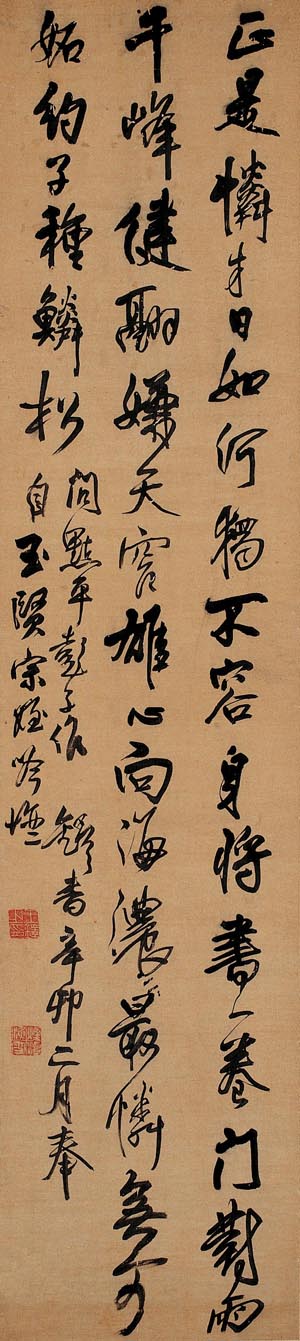 正是憐才日如何獨不容身將書一卷門對雨
千峰健翮嫌天窄雄心向海濃最憐無可
妬約子種鱗松
問平彭子作 鐸書辛卯二月奉
自玉賢宗侄吟壇